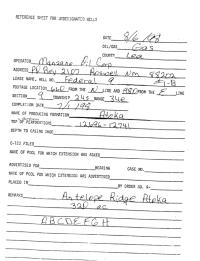 REFERENCE SHEET FOR UNDESIGNATED WELLS
DATE 8/6/98
OIL/GAS Gas
COUNTY Lea
OPERATOR Manzano Oil Corp
ADDRESS PO Box 2107 Roswell Nm 88202
LEASE NAME, WELL NO. Federal 9 #1-B
FOOTAGE LOCATION 660 FROM THE N LINE AND 1980 FROM THE E LINE
SECTION 9 TOWNSHIP 24S RANGE 34E
COMPLETION DATE
NAME OF PRODUCING FORMATION Atoka
TOP OF PERFORATIONS 12696-12741
DEPTH TO CASING SHOE
C-123 FILED
NAME OF POOL FOR WHICH EXTENSION WAS ASKED
ADVERTISED FOR HEARING CASE NO.
NAME OF POOL FOR WHICH EXTENSION WAS ADVERTISED
PLACED IN BY ORDER NO. R-
REMARKS Antelope Ridge Atoka
320 ac
ABCDEFGH